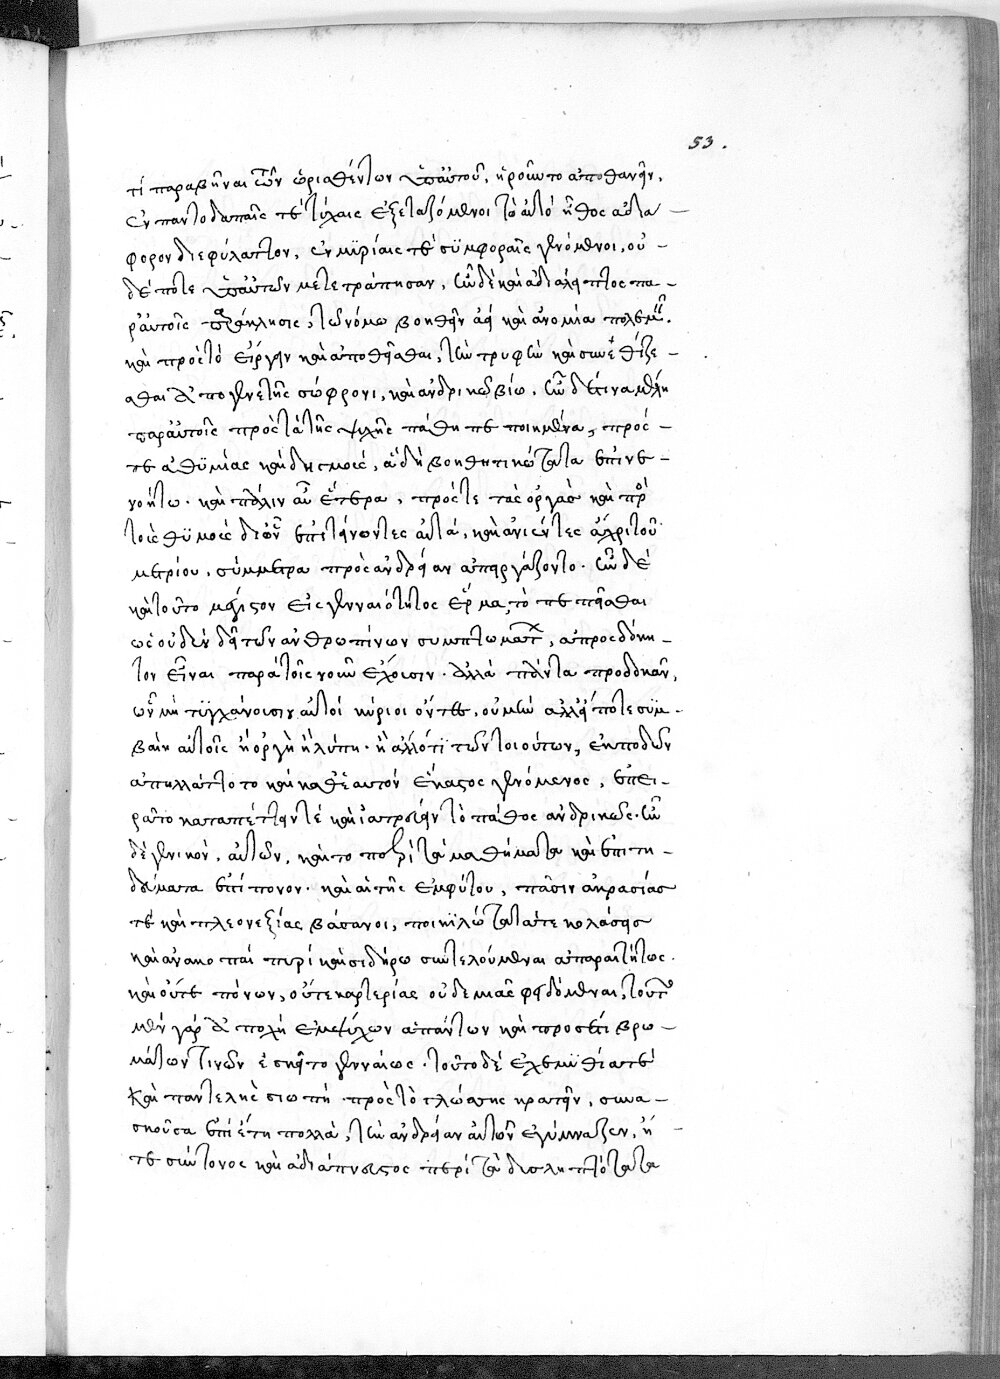 53.
τί παραβῆναι τῶν ὁρισθέντων ὑπ' αὐτοῦ, ἡροῦντο ἀποθανεῖν,
ἐν παντοδαπαῖς τὲ τύχαις ἐξεταζόμενοι τὸ αὐτὸ ἦθος ἀδιά-
φορον διεφύλαττον, ἐν μυρίαις τὲ συμφοραῖς γενόμενοι, οὐ-
δέποτε ὑπ' αὐτῶν μετετράπησαν, ἦν δὲ καὶ ἀδιάλειπτος πα-
ρ' αὐτοῖς παράκλησις, τῶ νόμω βοηθεῖν ἀεὶ καὶ ἀνομία πολεμεῖν.
καὶ πρὸς τὸ εἴργειν καὶ ἀπωθεῖσθαι, τὴν τρυφὴν καὶ συνεθίζε-
σθαι ἀπὸ γενετῆς σώφρονι, καὶ ἀνδρικῶ βίω. ἦν δέ τινα μέλη
παρ' αὐτοῖς πρὸς τὰ τῆς ψυχῆς πάθη πεποιημένα, πρός-
τε ἀθυμίας καὶ δηγμούς, ἃ δὴ βοηθητικώτατα ἐπινε-
νόητο. καὶ πάλιν αὖ ἕτερα, πρός τε τὰς ὀργὰς καὶ πρὸς
τοὺς θυμούς δι' ὧν ἐπιτείνοντες αὐτά, καὶ ἀνιέντες ἄχρι τοῦ
μετρίου, σύμμετρα πρὸς ἀνδρείαν ἀπειργάζοντο. ἦν δὲ
καὶ τοῦτο μέγιστον εἰς γενναιότητος ἕρμα, τὸ πεπεῖσθαι
ὡς οὐδὲν δεῖ τῶν ἀνθρωπίνων συμπτωμάτων, ἀπροσδόκη-
τον εἶναι παρὰ τοῖς νοῦν ἔχουσιν. ἀλλὰ πάντα προσδοκᾶν,
ὧν μὴ τυγχάνουσιν αὐτοὶ κύριοι ὄντες, οὐ μὴν ἀλλ' εἴ ποτε συμ-
βαίη αὐτοῖς ἢ ὀργὴ ἢ λύπη. ἢ ἄλλό τι τῶν τοιούτων, ἐκποδὼν
ἀπηλλάττοντο καὶ καθ' ἑαυτὸν ἕκαστος γενόμενος, ἐπει-
ρᾶτο καταπέττειν τέ καὶ ἰατρεύειν τὸ πάθος ἀνδρικῶς. ἦν
δὲ γενικόν, αὐτῶν, καὶ τὸ περὶ τὰ μαθήματα καὶ ἐπιτη-
δεύματα ἐπίπονον. καὶ αἱ τῆς ἐμφύτου, πᾶσιν ἀκρασίας
τὲ καὶ πλεονεξίας βάσανοι, ποικιλώταταί τε κολάσεις
καὶ ἀνακοπαὶ πυρὶ καὶ σιδήρω συντελούμεναι ἀπαραιτήτως.
καὶ οὔτε πόνων, οὔτε καρτερίας οὐδεμιᾶς φειδόμεναι, τοῦτο
μὲν γὰρ ἀποχὴ ἐμψύχων ἁπάντων καὶ προσέτι βρω-
μάτων τινῶν ἐσκεῖτο γενναίως. τοῦτο δὲ ἐχεμυθία τὲ
καὶ παντελὴς σιωπή. πρὸς τὸ γλώσσης κρατεῖν, συνα-
σκοῦσα ἐπὶ ἔτη πολλά, τὴν ἀνδρείαν αὐτῶν ἐγύμναζεν, ἥ
τε σύντονος καὶ ἀδιάπνευστος περὶ τὰ δυσληπτότατα